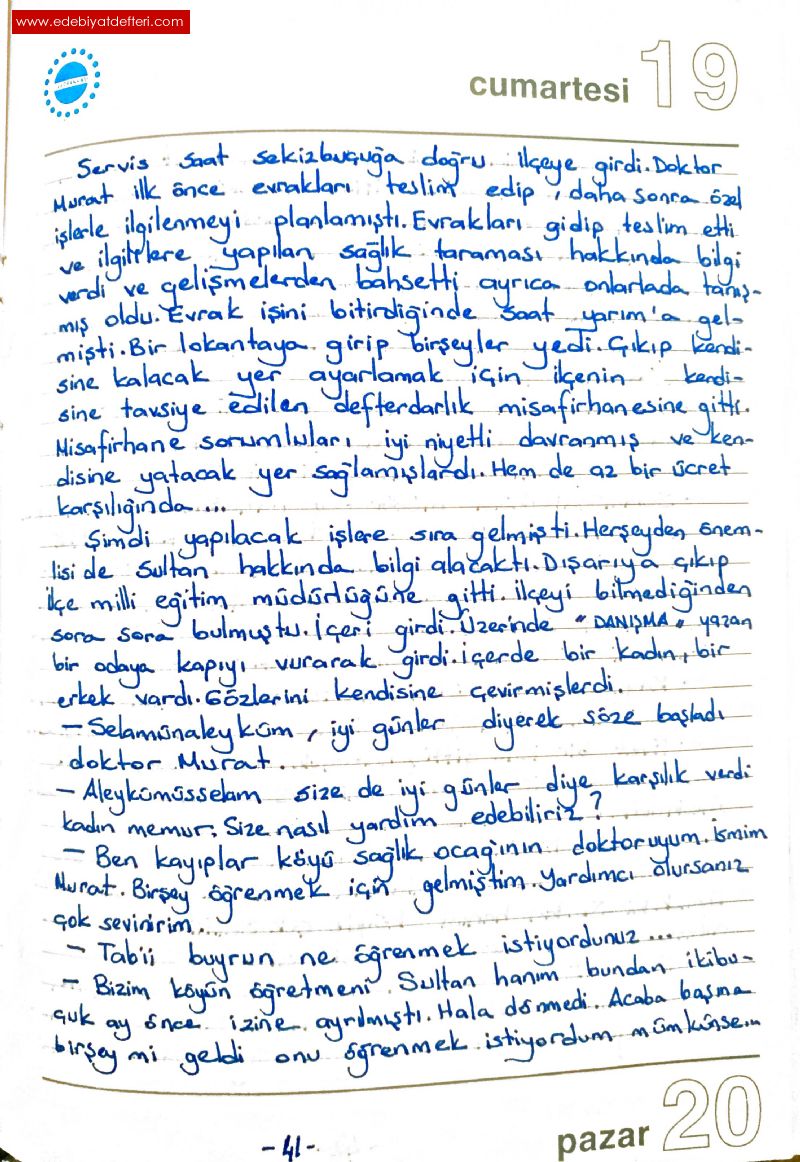 www.edebiyatdefteri.com
cumartesi 19
Servis saat sekizbuçuğa doğru ilçeye girdi. Doktor
Murat ilk önce evrakları teslim edip, daha sonra özel
işlerle ilgilenmeyi planlamıştı. Evrakları gidip teslim etti
ve ilgililere yapılan sağlık taraması hakkında bilgi
verdi ve gelişmelerden bahsetti ayrıca onlarlada tanış-
mış oldu. Evrak işini bitirdiğinde saat yarım'a gel-
mişti. Bir lokantaya girip birşeyler yedi. Çıkıp kendi-
sine kalacak yer ayarlamak için ilçenin kendi-
sine tavsiye edilen defterdarlık misafirhanesine gitti.
Misafirhane sorumluları iyi niyetli davranmış ve ken-
disine yatacak yer sağlamışlardı. Hem de az bir ücret
karşılığında ...
Şimdi yapılacak işlere sıra gelmişti. Herşeyden önem-
lisi de Sultan hakkında bilgi alacaktı. Dışarıya çıkıp
ilçe milli eğitim müdürlüğüne gitti. İlçeyi bilmediğinden
sora sora bulmuştu. İçeri girdi. Üzerinde "DANIŞMA" yazan
bir odaya kapıyı vurarak girdi. İçerde bir kadın, bir
erkek vardı. Gözlerini kendisine çevirmişlerdi.
- Selamünaleyküm, iyi günler diyerek söze başladı
doktor Murat.
- Aleykümüsselam size de iyi günler diye karşılık verdi
kadın memur; Size nasıl yardım edebiliriz?
- Ben kayıplar köyü sağlık ocağının doktoruyum. İsmim
Murat. Birşey öğrenmek için gelmiştim. Yardımcı olursanız
çok sevinirim..
- Tab'ii buyrun ne öğrenmek istiyordunuz ...
- Bizim köyün öğretmeni Sultan hanım bundan ikibu-
çuk ay önce izine ayrılmıştı. Hala dönmedi. Acaba başına
birşey mi geldi onu öğrenmek istiyordum mümkünse...
-41-
pazar 20